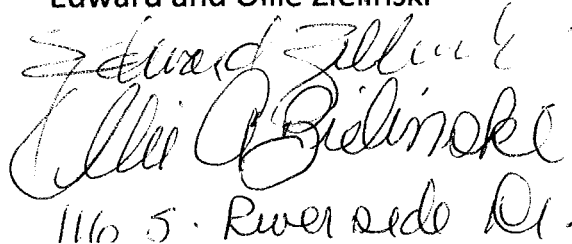 Edward and Ollie Zielinski
Edward Zielinski
Ollie A Zielinski
116 S. Riverside Dr.